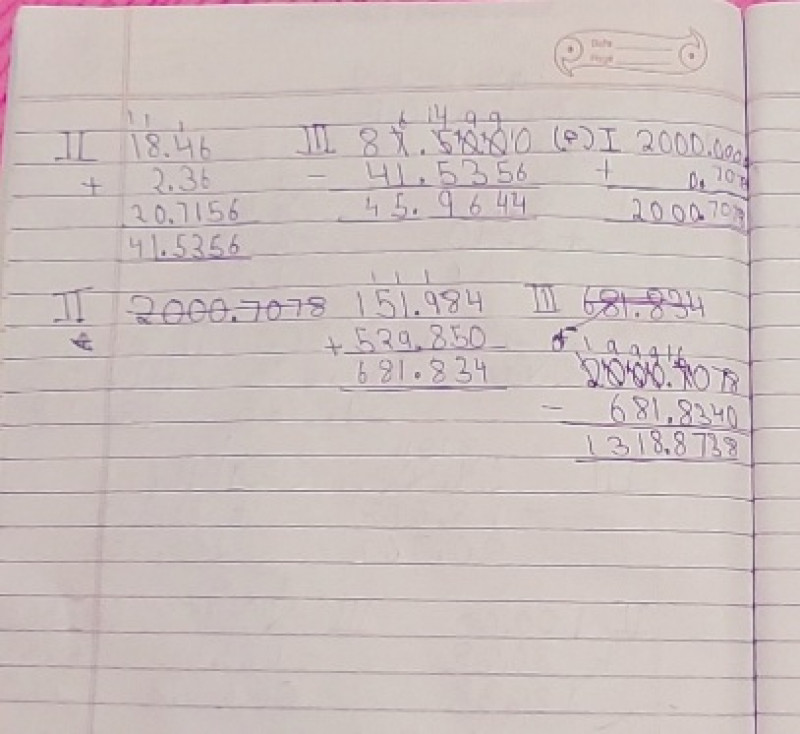 Date
Page
II 18.46
+ 2.36
20.7156
41.5356
III 87.5000
- 41.5356
45.9644
(e) I 2000.000
+ 0.7078
2000.7078
II 2000.7078
1 1 1
151.984
+ 529.850
681.834
III 681.834
2000.7078
- 681.8340
1318.8738